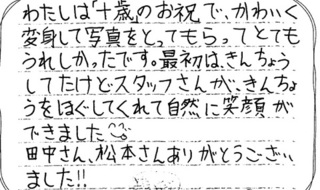 わたしは「十歳」のお祝で、かわいく
変身して写真をとってもらってとても
うれしかったです。最初は、きんちょう
してたけどスタッフさんが、きんちょ
うをほぐしてくれて自然に笑顔が
できました
田中さん、松本さんありがとうござい
ました!!